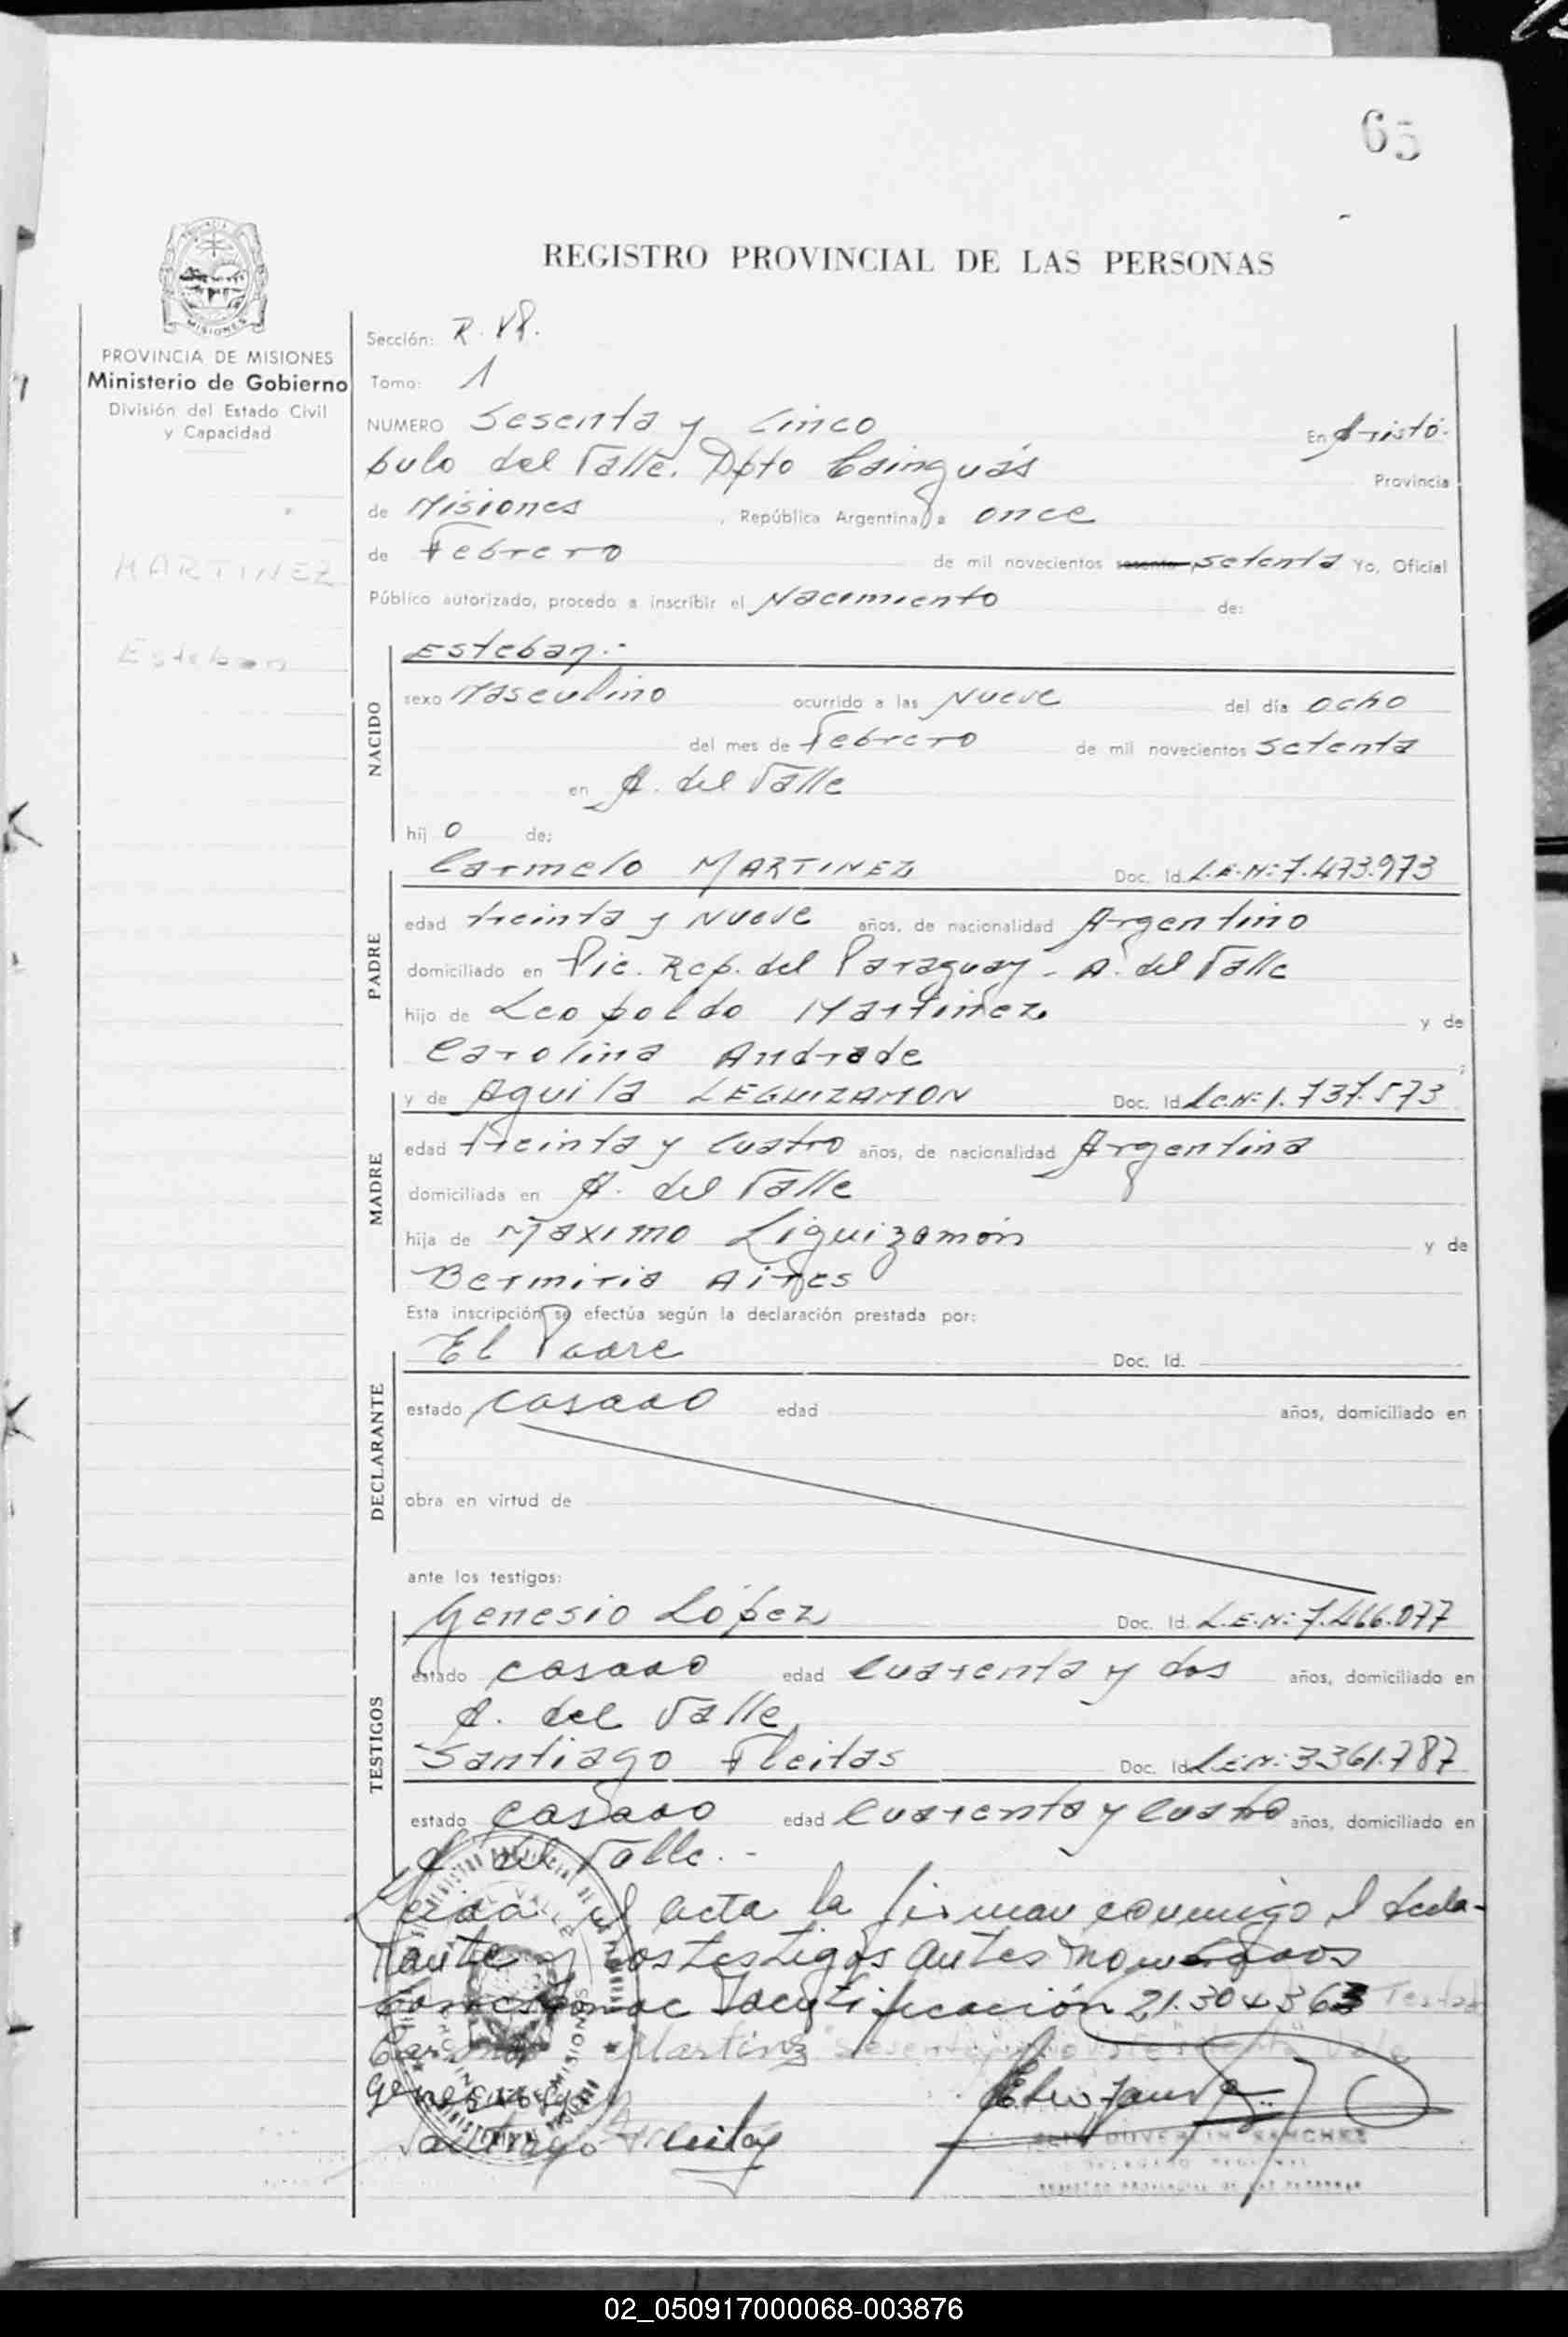 65
REGISTRO PROVINCIAL DE LAS PERSONAS
MISIONES
PROVINCIA DE MISIONES
Ministerio de Gobierno
División del Estado Civil
y Capacidad
MARTINEZ
Esteban
Sección:
Tomo: 1
NUMERO Sesenta y Cinco En Aristó-
bulo del Valle. Dpto Cainguás Provincia
de Misiones, República Argentina a once
de Febrero de mil novecientos sesenta setenta Yo, Oficial
Público autorizado, procedo a inscribir el Nacimiento de:
NACIDO
Esteban.-
sexo Masculino ocurrido a las Nueve del día ocho
del mes de Febrero de mil novecientos setenta
en A. del Valle
hij o de:
PADRE
Carmelo MARTINEZ Doc. Id. L.E.Nº 7.473.973
edad treinta y Nueve años, de nacionalidad Argentino
domiciliado en Pic. Rep. del Paraguay - A. del Valle
hijo de Leopoldo Martinez y de
Carolina Andrade ;
MADRE
y de Aguila LEGUIZAMON Doc. Id. L.C.Nº 1.737.573
edad treinta y Cuatro años, de nacionalidad Argentina
domiciliada en A. del Valle
hija de Maximo Liguizamón y de
Aires
Esta inscripción se efectúa según la declaración prestada por:
DECLARANTE
El Padre Doc. Id.
estado casado edad años, domiciliado en
obra en virtud de
ante los testigos:
TESTIGOS
Genesio López Doc. Id. L.E.Nº 7.466.077
estado casado edad Cuarenta y dos años, domiciliado en
A. del Valle
Santiago Fleitas Doc. Id. L.E.Nº 3.361.787
estado casado edad Cuarenta y Cuatro años, domiciliado en
A. del Valle.-
Leida el acta la firman conmigo el decla-
rante y los testigos antes nombrados
Identificación 21.304.363
Martinez
Santiago Fleitas
SANCHEZ
02_050917000068-003876